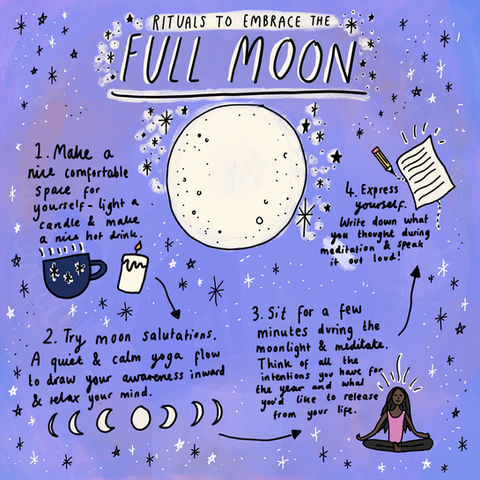 RITUALS TO EMBRACE THE
FULL MOON
1. Make a
nice comfortable
space for
yourself - light a
candle & make
a nice hot drink.
2. Try moon salutations.
A quiet & calm yoga flow
to draw your awareness inward
& relax your mind.
3. Sit for a few
minutes during the
moonlight & meditate.
Think of all the
intentions you have for
the year and what
you'd like to release
from your life.
4. Express
yourself.
Write down what
you thought during
meditation & speak
it out loud!